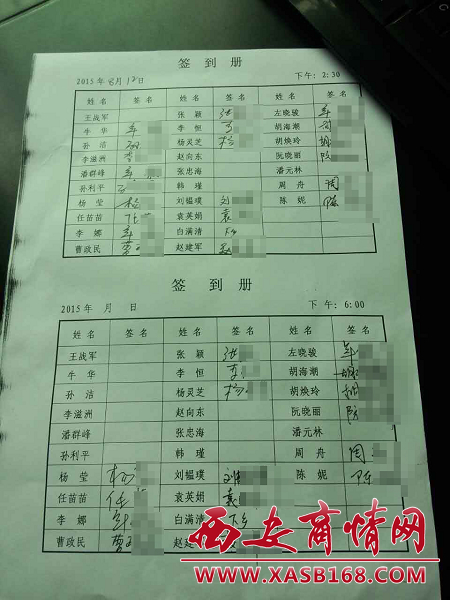 签到册
2015年8月12日 下午: 2:30
姓名 签名 姓名 签名 姓名 签名
王战军 张颖 张 左晓骏
牛华 李恒 胡海潮
孙洁 杨灵芝 杨 胡焕玲 胡
李滋洲 李 赵向东 阮晓丽 阮
潘群峰 张忠海 潘元林
孙利平 韩瑾 周舟 周
杨莹 杨 刘韫璞 刘 陈妮 陈
任苗苗 任 袁英娟 袁
李娜 白满清
曹政民 曹 赵建军 赵
签到册
2015年 月 日 下午: 6:00
姓名 签名 姓名 签名 姓名 签名
王战军 张颖 张 左晓骏
牛华 李恒 李 胡海潮 胡
孙洁 杨灵芝 杨 胡焕玲 胡
李滋洲 赵向东 阮晓丽 阮
潘群峰 张忠海 潘元林
孙利平 韩瑾 周舟 周
杨莹 杨 刘韫璞 刘 陈妮 陈
任苗苗 任 袁英娟 袁
李娜 白满清
曹政民 曹 赵建
西安商情网
WWW.XASB168.COM